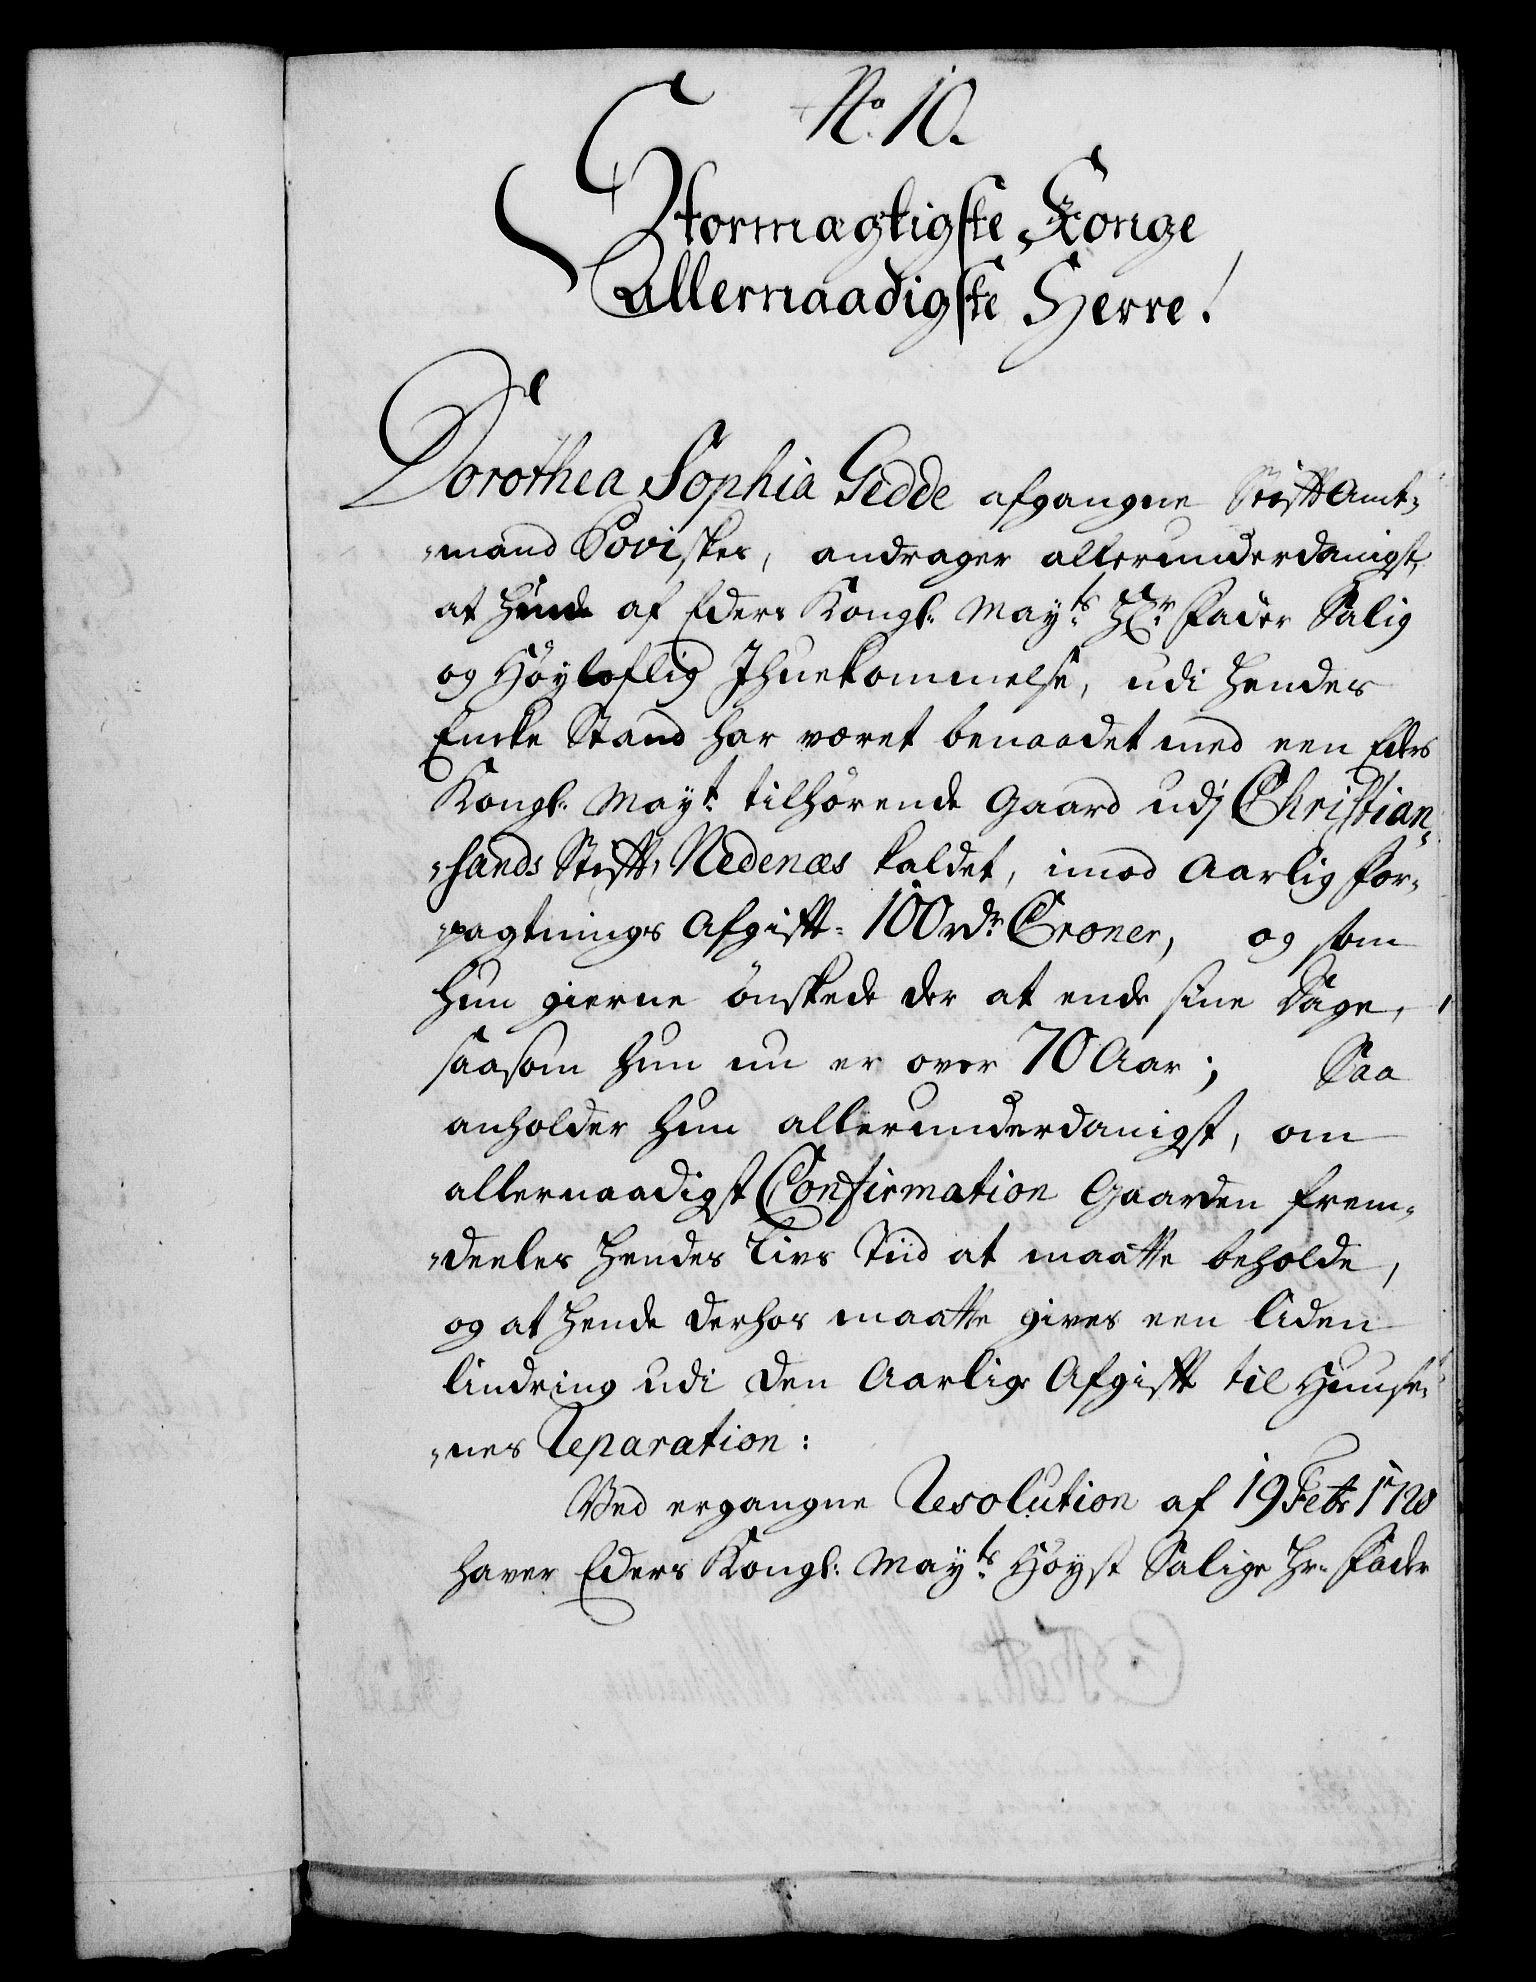 No. 10.
Stormægtigste Konge
Allernaadigste Herre!
Dorothea Sophia Gedde afgangne Stift Amt-
-mand Povisches, andrager allerunderdanigst,
at hende af Eders Kongl: Mayts Hr Fader Salig
og Høyloflig Ihuekommelse, udi hendes
Encke Stand har været benaadet med een Eders
Kongl: Mayt: tilhørende Gaard udj Christian-
-sands Stift, Nedenæs kaldet, imod Aarlig for-
-pagtnings Afgift 100 rdr Croner, og som
hun gierne ønskede der at ende sine Dage,
saasom hun nu er over 70 Aar; Saa
anholder hun allerunderdanigst, om
allernaadigst Confirmation Gaarden frem-
-deeles hendes Livs Tiid at maatte beholde,
og at hende derhos maatte gives een liden
lindring udi den Aarlige Afgift til Huuse-
-nes Reparation:
Ved ergangne Resolution af 19 Febr 1720
haver Eders Kongl: Mayts Høyst Salige Hr Fader